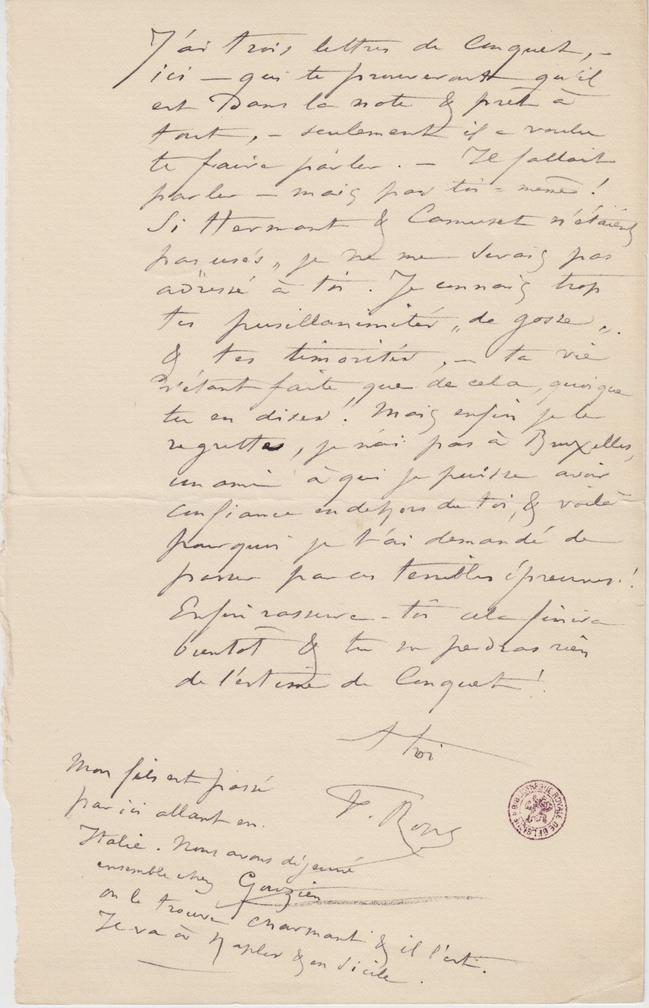 J'ai trois lettres de Conquet, –
ici – qui te prouveront qu'il
est Dans la note & prêt à
tout, – seulement il a voulu
te faire parler. – Il fallait
parler – mais par toi-même!
Si Hermant & Camuset n'étaient
pas usés, je ne me serais pas
adressé à toi. Je connais trop
tes pusillanimités „de gosse„
& tes timorités, – ta vie
n'étant faite que de cela, quoique
tu en dises! Mais enfin je le
regrette, je n'ai pas à Bruxelles,
un ami à qui je puisse avoir
confiance en dehors de toi, & voilà
pourquoi je t'ai demandé de
passer par ces terribles épreuves!
Enfin rassure-toi cela finira
bientôt & tu ne perdras rien
de l'estime de Conquet!
A toi
F. Rops
Mon fils est passé
par ici allant en
Italie. Nous avons déjeuné
ensemble chez Gouzien
on le trouve charmant & il l'est.
Il va à Naples & en Sicile.
BIBLIOTHÈQUE ROYALE DE BELGIQUE